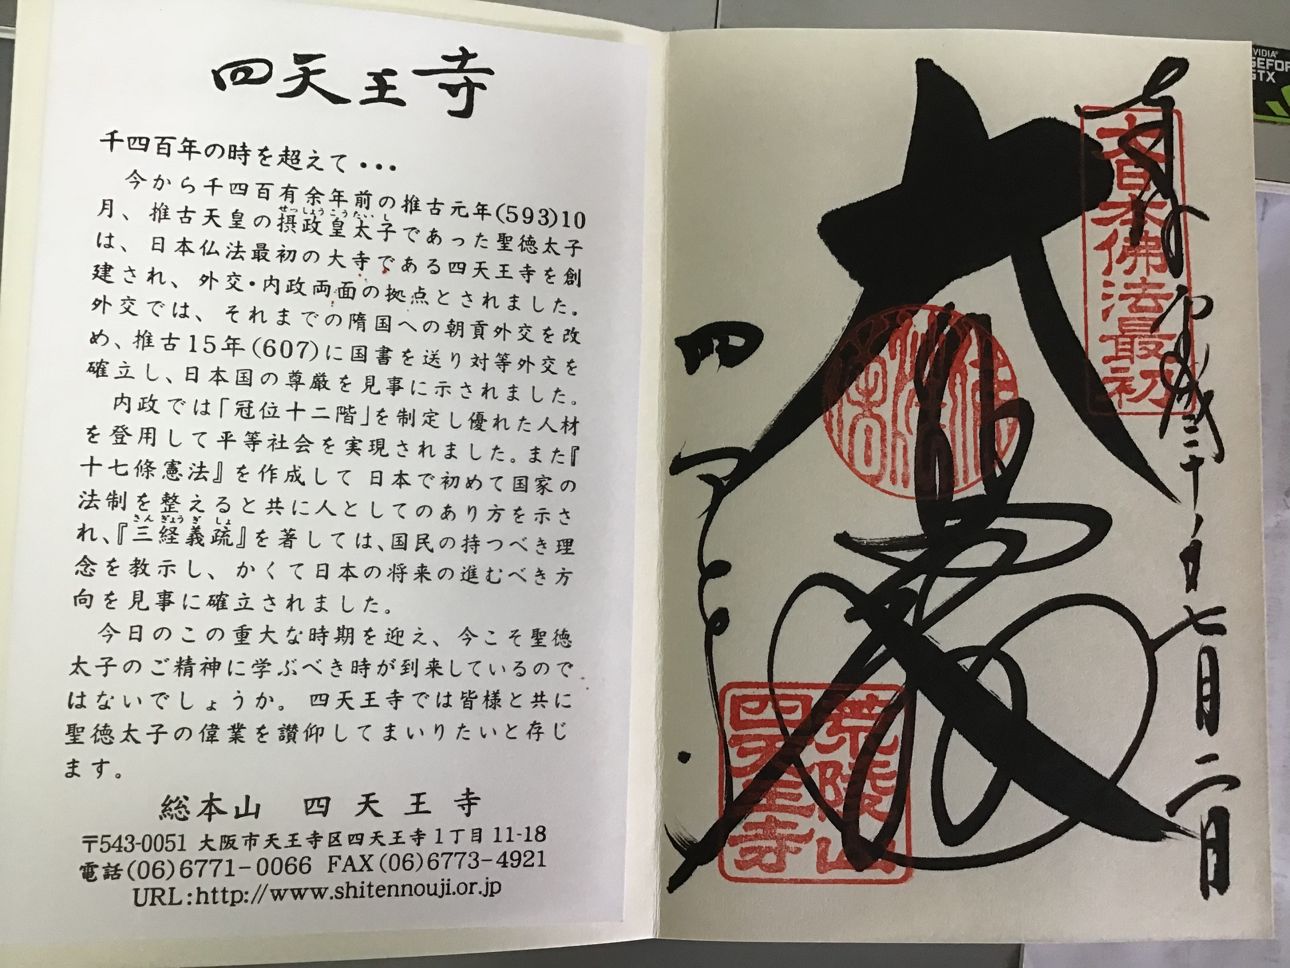 四天王寺
千四百年の時を超えて・・・
今から千四百有余年前の推古元年(593)10
月、推古天皇の摂政皇太子であった聖徳太子
せっしょうこうたいし
は、日本仏法最初の大寺である四天王寺を創
建され、外交・内政両面の拠点とされました。
外交では、それまでの隋国への朝貢外交を改
め、推古15年(607)に国書を送り対等外交を
確立し、日本国の尊厳を見事に示されました。
内政では「冠位十二階」を制定し優れた人材
を登用して平等社会を実現されました。また『
十七條憲法』を作成して日本で初めて国家の
法制を整えると共に人としてのあり方を示さ
さんぎょうぎしょ
れ、『三経義疏』を著しては、国民の持つべき理
念を教示し、かくて日本の将来の進むべき方
向を見事に確立されました。
今日のこの重大な時期を迎え、今こそ聖徳
太子のご精神に学ぶべき時が到来しているので
はないでしょうか。四天王寺では皆様と共に
聖徳太子の偉業を讃仰してまいりたいと存じ
ます。
総本山 四天王寺
〒543-0051 大阪市天王寺区四天王寺1丁目11-18
電話(06)6771-0066 FAX(06)6773-4921
URL:http://www.shitennouji.or.jp
大日本佛法最初
七月二日
大
四
荒陵山
四天王寺
GEFORCE
GTX